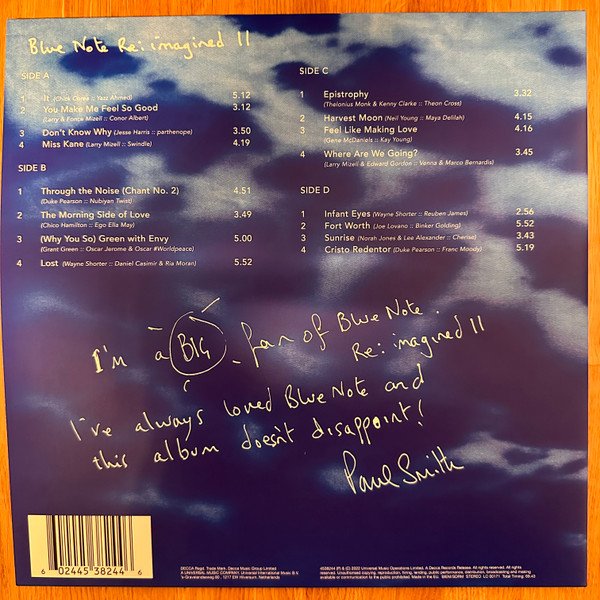 Blue Note Re:imagined II
SIDE A
1 It (Chick Corea :: Yazz Ahmed) 5.12
2 You Make Me Feel So Good 3.12
(Larry & Fonce Mizell :: Conor Albert)
3 Don't Know Why (Jesse Harris :: parthenope) 3.50
4 Miss Kane (Larry Mizell :: Swindle) 4.19
SIDE B
1 Through the Noise (Chant No. 2) 4.51
(Duke Pearson :: Nubiyan Twist)
2 The Morning Side of Love 3.49
(Chico Hamilton :: Ego Ella May)
3 (Why You So) Green with Envy 5.00
(Grant Green :: Oscar Jerome & Oscar #Worldpeace)
4 Lost (Wayne Shorter :: Daniel Casimir & Ria Moran) 5.52
SIDE C
1 Epistrophy 3.32
(Thelonius Monk & Kenny Clarke :: Theon Cross)
2 Harvest Moon (Neil Young :: Maya Delilah) 4.15
3 Feel Like Making Love 4.16
(Gene McDaniels :: Kay Young)
4 Where Are We Going? 3.45
(Larry Mizell & Edward Gordon :: Venna & Marco Bernardis)
SIDE D
1 Infant Eyes (Wayne Shorter :: Reuben James) 2.56
2 Fort Worth (Joe Lovano :: Binker Golding) 5.52
3 Sunrise (Norah Jones & Lee Alexander :: Cherise) 3.43
4 Cristo Redentor (Duke Pearson :: Franc Moody) 5.19
I'm a BIG fan of Blue Note.
Re:imagined II
I've always loved Blue Note and
this album doesn't disappoint!
Paul Smith
6 02445 38244 6
DECCA Regd. Trade Mark. Decca Music Group Limited
A UNIVERSAL MUSIC COMPANY. Universal International Music B.V.
's-Gravelandseweg 80, 1217 EW Hilversum, Netherlands
2022 Universal Music Operations Limited. A Decca Records Release. All rights of
reserved. Unauthorised copying, reproduction, hiring, lending, public performance, distribution, broadcasting and making
available or communication to the public prohibited. Made in the EU. BIEM/SDRM STEREO LC 00171 Total Timing: